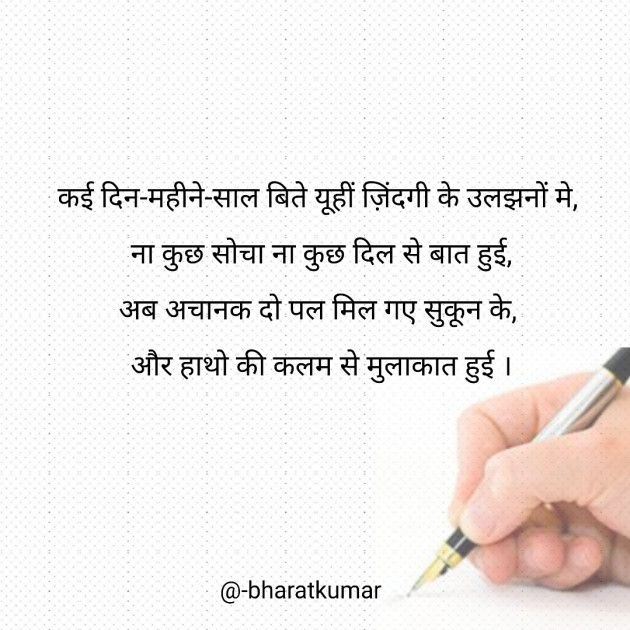 कई दिन-महीने-साल बिते यूहीं ज़िंदगी के उलझनों मे,
ना कुछ सोचा ना कुछ दिल से बात हुई,
अब अचानक दो पल मिल गए सुकून के,
और हाथो की कलम से मुलाकात हुई ।
@-bharatkumar